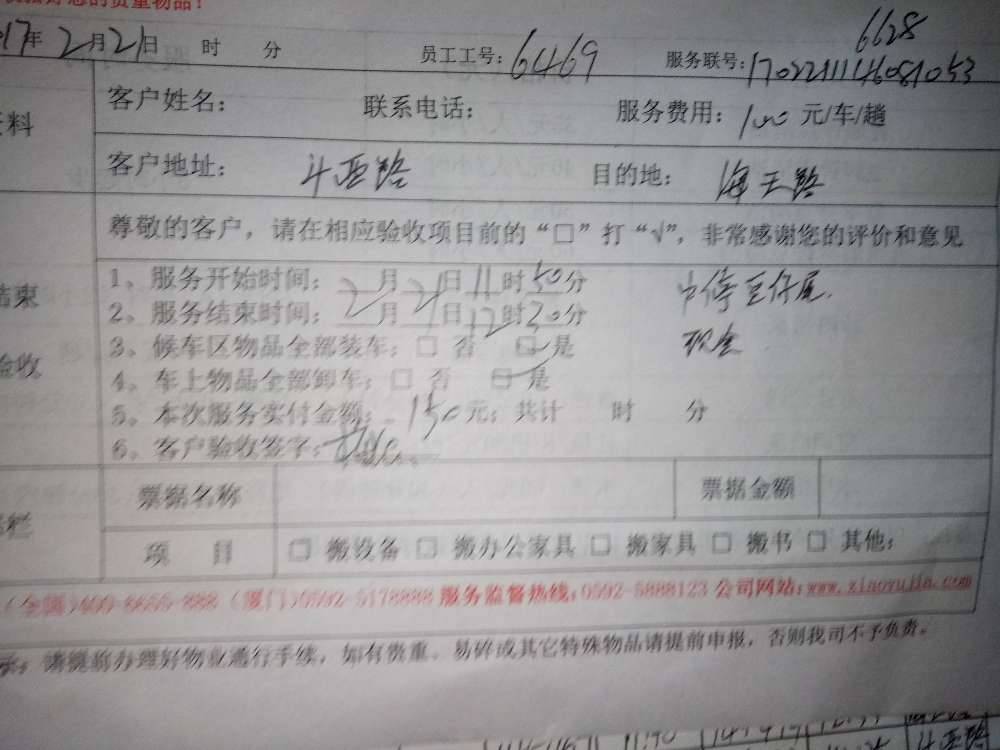 您的贵重物品！
17年 2月21日 时 分 员工工号：6469 服务联号：
6628
1702211146081053
料 客户姓名： 联系电话： 服务费用：100元/车/趟
客户地址： 斗西路 目的地： 海天路
尊敬的客户，请在相应验收项目前的“□”打“√”，非常感谢您的评价和意见
结束 1、服务开始时间：2月21日11时50分 中停豆仔尾.
2、服务结束时间：2月21日12时30分
3、候车区物品全部装车：□ 否 □ 是 现金
验收 4、车上物品全部卸车：□ 否 □ 是
5、本次服务实付金额：150元；共计 时 分
6、客户验收签字：
栏 票据名称 票据金额
项 目 □ 搬设备 □ 搬办公家具 □ 搬家具 □ 搬书 □ 其他：
(厦门)0592-5178888 服务监督热线：0592-5888123 公司网站：www.xiaoyujia.com
请提前办理好物业通行手续，如有贵重、易碎或其它特殊物品请提前申报，否则我司不予负责。
斗西路